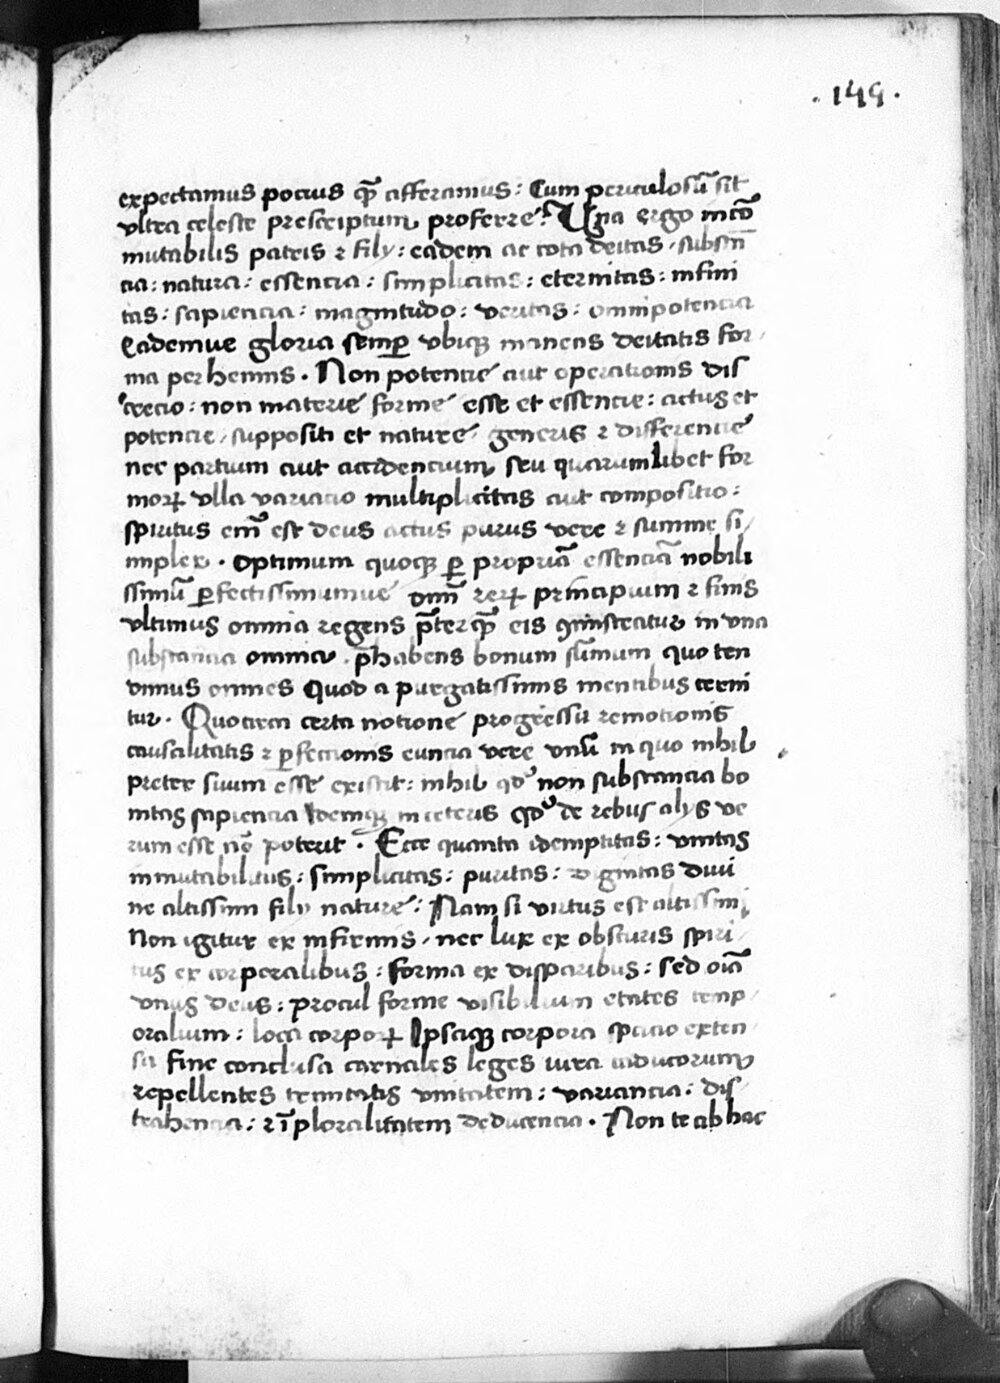 . 149 .
expectamus pocius qȝ̄ afferamus : Cum periculosū sit
vltra celeste prescriptum proferre : Vna ergo incō
mutabilis patris ⁊ filij : eadem ac tota deitas / substā
cia : natura : essencia : simplicitas : eternitas : infini
tas : sapiencia : magnitudo : veritas : omnipotencia
Eademue gloria semꝑ vbiqꝫ manens deitatis for /
ma perhennis . Non potencie aut operationis dis
crecio : non materie forme esse et essencie : actus et
potencie / suppositi et nature / generis ⁊ differencie
nec partium aut accidencium seu quarumlibet for
moꝝ vlla variatio multiplicitas aut compositio :
spiritus em̄ est deus actus purus vere ⁊ summe si /
mplex . optimum quoqꝫ ꝑ propriā essenciā nobili
ssimū ꝑfectissimumue om̄ reꝝ principium ⁊ finis
vltimus omnia regens p̄terqȝ̄ eis ꝯministratur in vna
substancia omnia . p̄habens bonum sūmum quo ten
dimus omnes Quod a purgatissimis mentibus cerni
tur . Quociren certa notione progressu remotionis
causalitatis ⁊ ꝑfectionis cuncta vere vnū in quo nihil
preter suum esse existit : nihil qd̓ non substancia bo
nitas sapiencia Idemqꝫ in ceteris qd̓ de rebus alijs ve
rum esse nō poterit . Ecce quanta idemptitas : vnitas
inmutabilitas : simplicitas : puritas : dignitas diui
ne altissimi filij nature : Nam si virtus est altissimi
Non igitur ex infirmis / nec lux ex obscuris spiri /
tus ex corporalibus : forma ex disparibus : sed oīa
vnus deus : procul forme visibilium etates temp /
oralium : loca corpoꝝ Ipsaqꝫ corpora spacio exten /
sa fine conclusa carnales leges iura caducorum
repellentes trinitatis vnitatem : variancia : dis /
trahencia : ⁊ ī ploralitatem deducencia . Non te ab hac